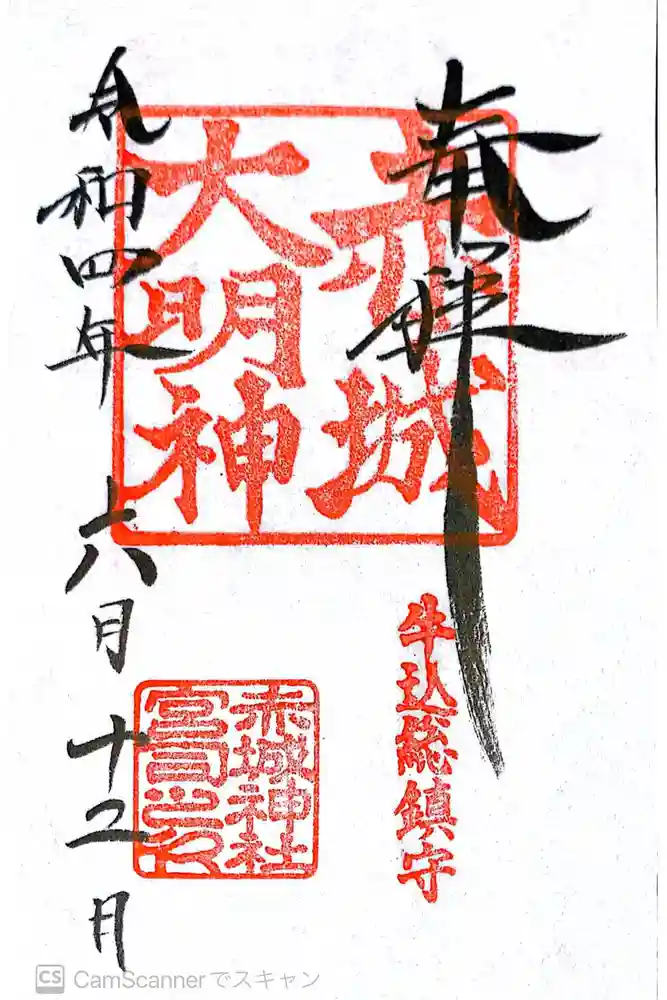 奉拝
赤城
大明神
牛込総鎮守
赤城神社
宮司之印
令和四年 六月 十二日
CS CamScannerでスキャン